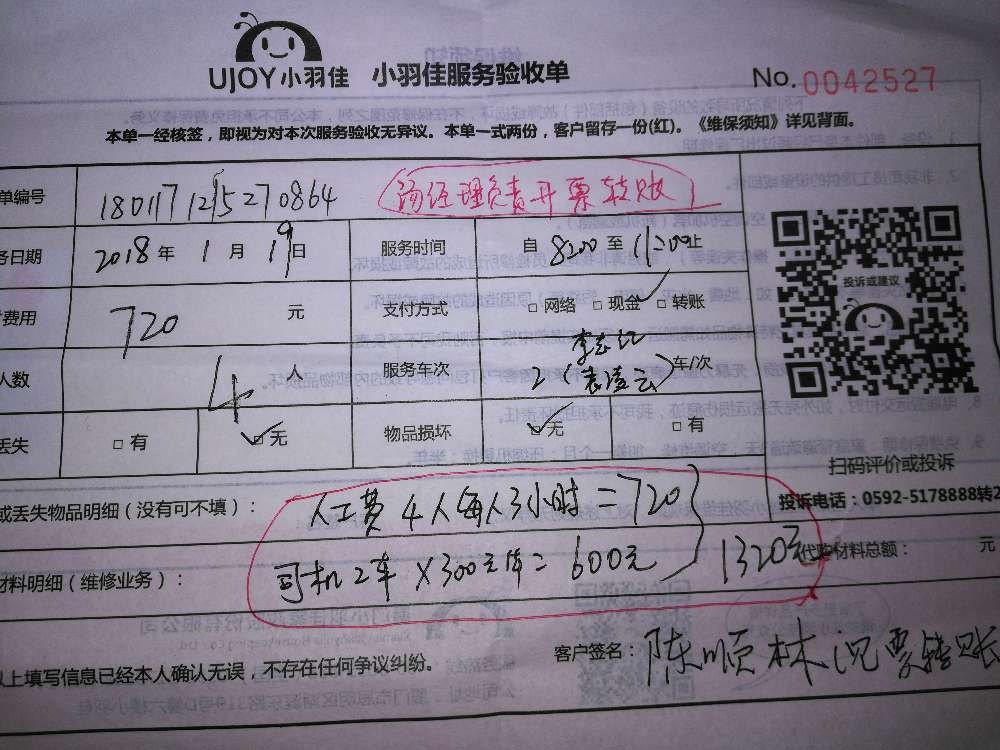 UJOY小羽佳 小羽佳服务验收单 No.0042527
本单一经核签，即视为对本次服务验收无异议。本单一式两份，客户留存一份(红)。《维保须知》详见背面。
单编号 1801171215270864 汤经理负责开票转账
务日期 2018年1月19日 服务时间 自8:00至11:00止
费用 720 元 支付方式 □网络 □现金 □转账
投诉或建议
人数 4 人 服务车次 2(李志 袁凌云)车/次
丢失 □有 □无 物品损坏 □无 □有
扫码评价或投诉
或丢失物品明细（没有可不填）： 人工费4人每人3小时=720
投诉电话：0592-5178888转2
材料明细（维修业务）： 司机2车×300元/车=600元 1320元 代购材料总额： 元
以上填写信息已经本人确认无误，不存在任何争议纠纷。 客户签名： 陈顺林 票转账